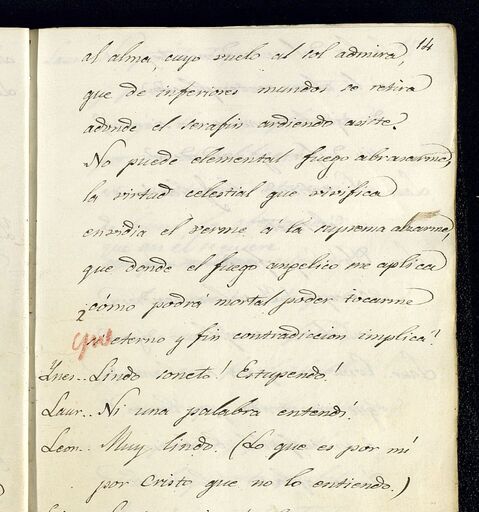 14
al alma, cuyo vuelo al sol admira,
que de inferiores mundos se retira
adonde el serafin ardiendo asiste.
No puede elemental fuego abrasarme,
la virtud celestial que vivifica
envidia el verme á la suprema alzarme,
que donde el fuego angelico me aplica
¿cómo podrá mortal poder tocarme
que eterno y fin contradiccion implica?
Ynes.. Lindo soneto! Estupendo!
Laur.. Ni una palabra entendí!
Leon.. Muy lindo. (Lo que es por mí
por Cristo que no lo entiendo.)